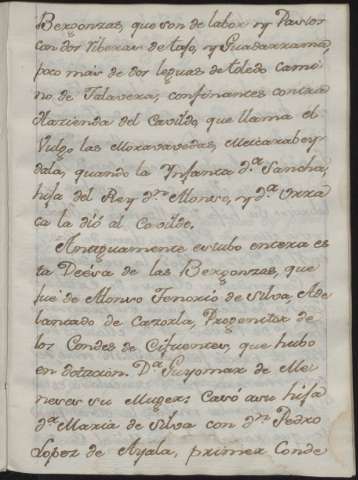 Berzonzas, que son de labor, y Pastos
con dos riberas de tajo, y Guadarrama,
poco mas de dos leguas de toledo cami
no de Talavera, confinantes con la
Hazienda del Cavildo, que llama el
Vulgo las Moravavedas,
dala, quando la Infanta d.ª Sancha,
hija del Rey d.n Alonso, y d.ª Urra
ca la dió al Cavildo.
Antiguamente estubo entera es
ta Deésa de las Berzonzas, que
fué de Alonso Tenorio de Silva, Ade
lantado de Cazorla, Progenitor de
los Condes de Cifuentes, que hubo
en dotacion D.ª Guyomar de Me
neses su Muger: Casó a su hija
d.ª Maria de Silva con d.n Pedro
Lopez de Ayala, primer Conde